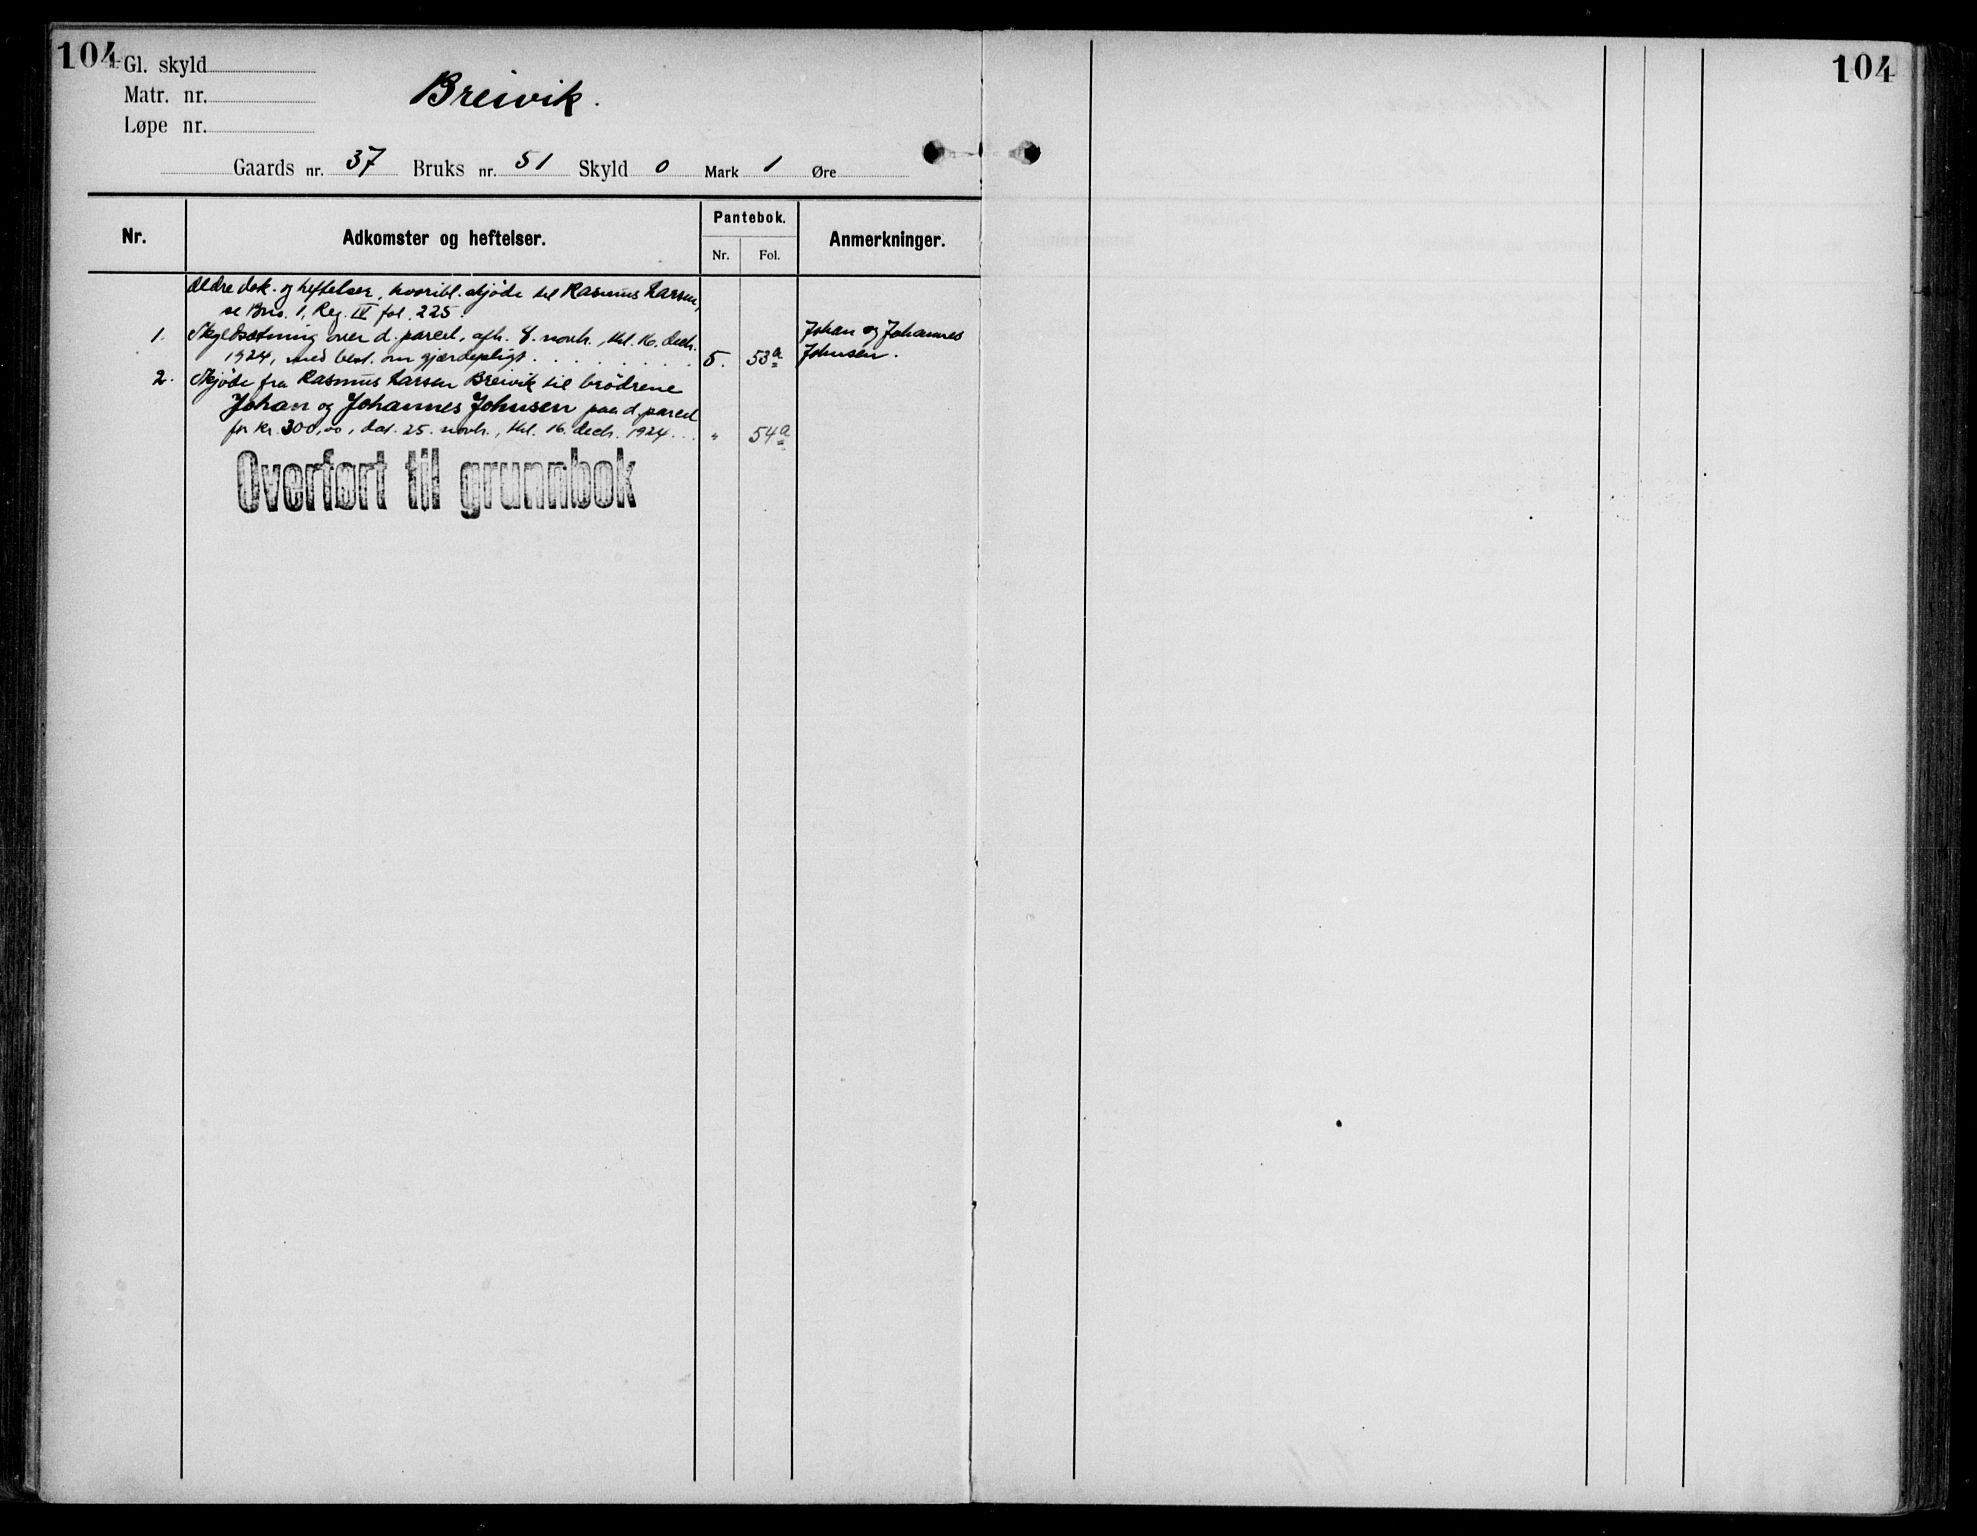 104
Gl. skyld
Matr. nr.
Løpe nr.
Breivik.
Gaards nr. 37 Bruks nr. 51 Skyld 0 Mark 1 Øre
Nr. Adkomster og heftelser. Pantebok. Anmerkninger.
Nr. Fol.
Ældre dok. og heftelser, hvoribl. skjøde til Rasmus Larsen,
se Bno. 1, Reg. IV fol. 225.
1. Skyldsætning over d. parcel, afh. 8. novbr., thl. 16. decbr.
1924, med best. om gjærdepligt . . . . . . . 5. 53a
Johan og Johannes
Johnsen.
2. Skjøde fra Rasmus Larsen Breivik til brødrene
Johan og Johannes Johnsen paa d. parcel
for kr. 300,00, dat. 25. novbr., thl. 16. decbr. 1924 . . . " 54a
Overført til grunnbok
104